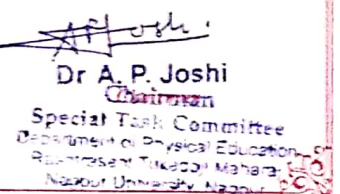 APJoshi.
Dr A. P. Joshi
Chairman
Special Task Committee
Department of Physical Education
Rashtrasant Tukadoji Maharaj
Nagpur University, Nagpur